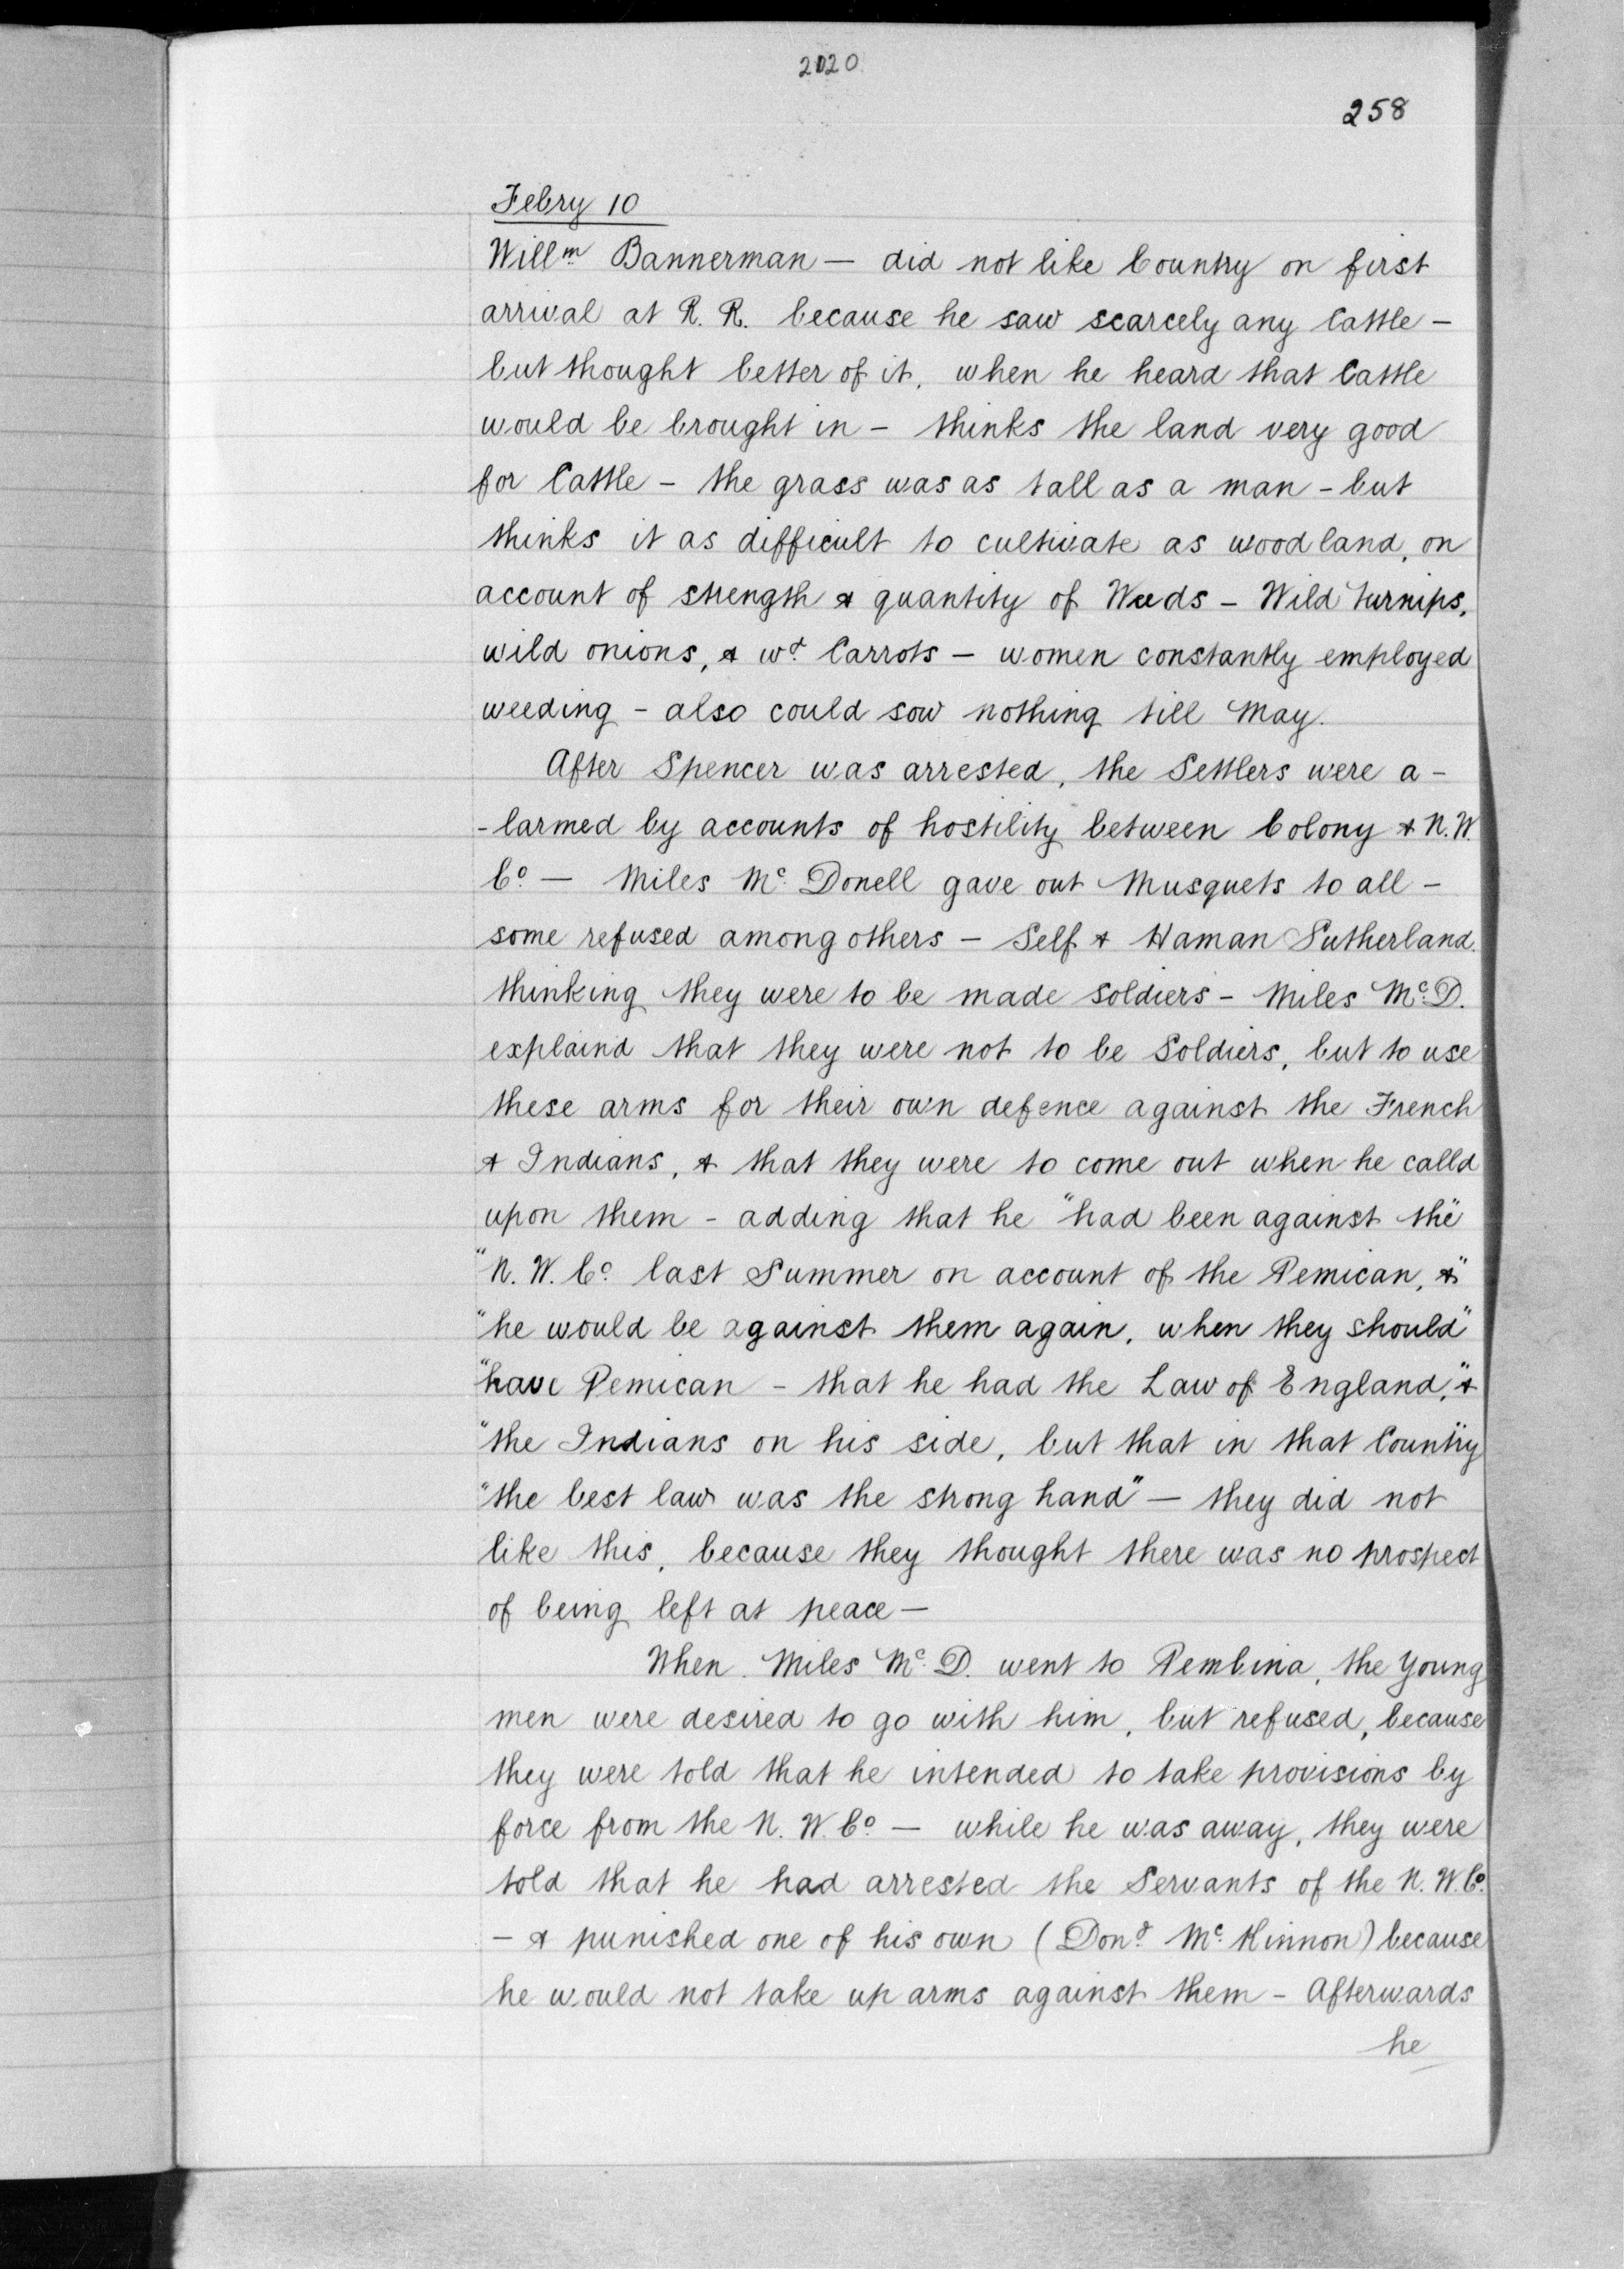 2020
258
Febry 10
Willm Bannerman — did not like Country on first
arrival at R. R. because he saw scarcely any Cattle —
but thought better of it, when he heard that Cattle
would be brought in — thinks the land very good
for Cattle — the grass was as tall as a man — but
thinks it as difficult to cultivate as wood land, on
account of strength & quantity of Weeds — Wild turnips,
wild onions, & wd. Carrots — women constantly employed
weeding — also could sow nothing till May.
After Spencer was arrested, the Settlers were a-
-larmed by accounts of hostility between Colony & N. W.
Co. — Miles Mc. Donell gave out Musquets to all —
some refused among others — Self & Haman Sutherland.
thinking they were to be made soldiers — Miles Mc. D.
explaind that they were not to be Soldiers, but to use
these arms for their own defence against the French
& Indians, & that they were to come out when he calld
upon them — adding that he "had been against the"
"N. W. Co. last Summer on account of the Pemican, &"
"he would be against them again, when they should"
"have Pemican — that he had the Law of England," &
"the Indians on his side, but that in that Country"
"the best law was the strong hand" — they did not
like this, because they thought there was no prospect
of being left at peace —
When Miles Mc. D. went to Pembina, the Young
men were desired to go with him, but refused, because
they were told that he intended to take provisions by
force from the N. W. Co. — while he was away, they were
told that he had arrested the Servants of the N. W. Co.
— & punished one of his own (Dond. Mc. Kinnon) because
he would not take up arms against them — Afterwards
he